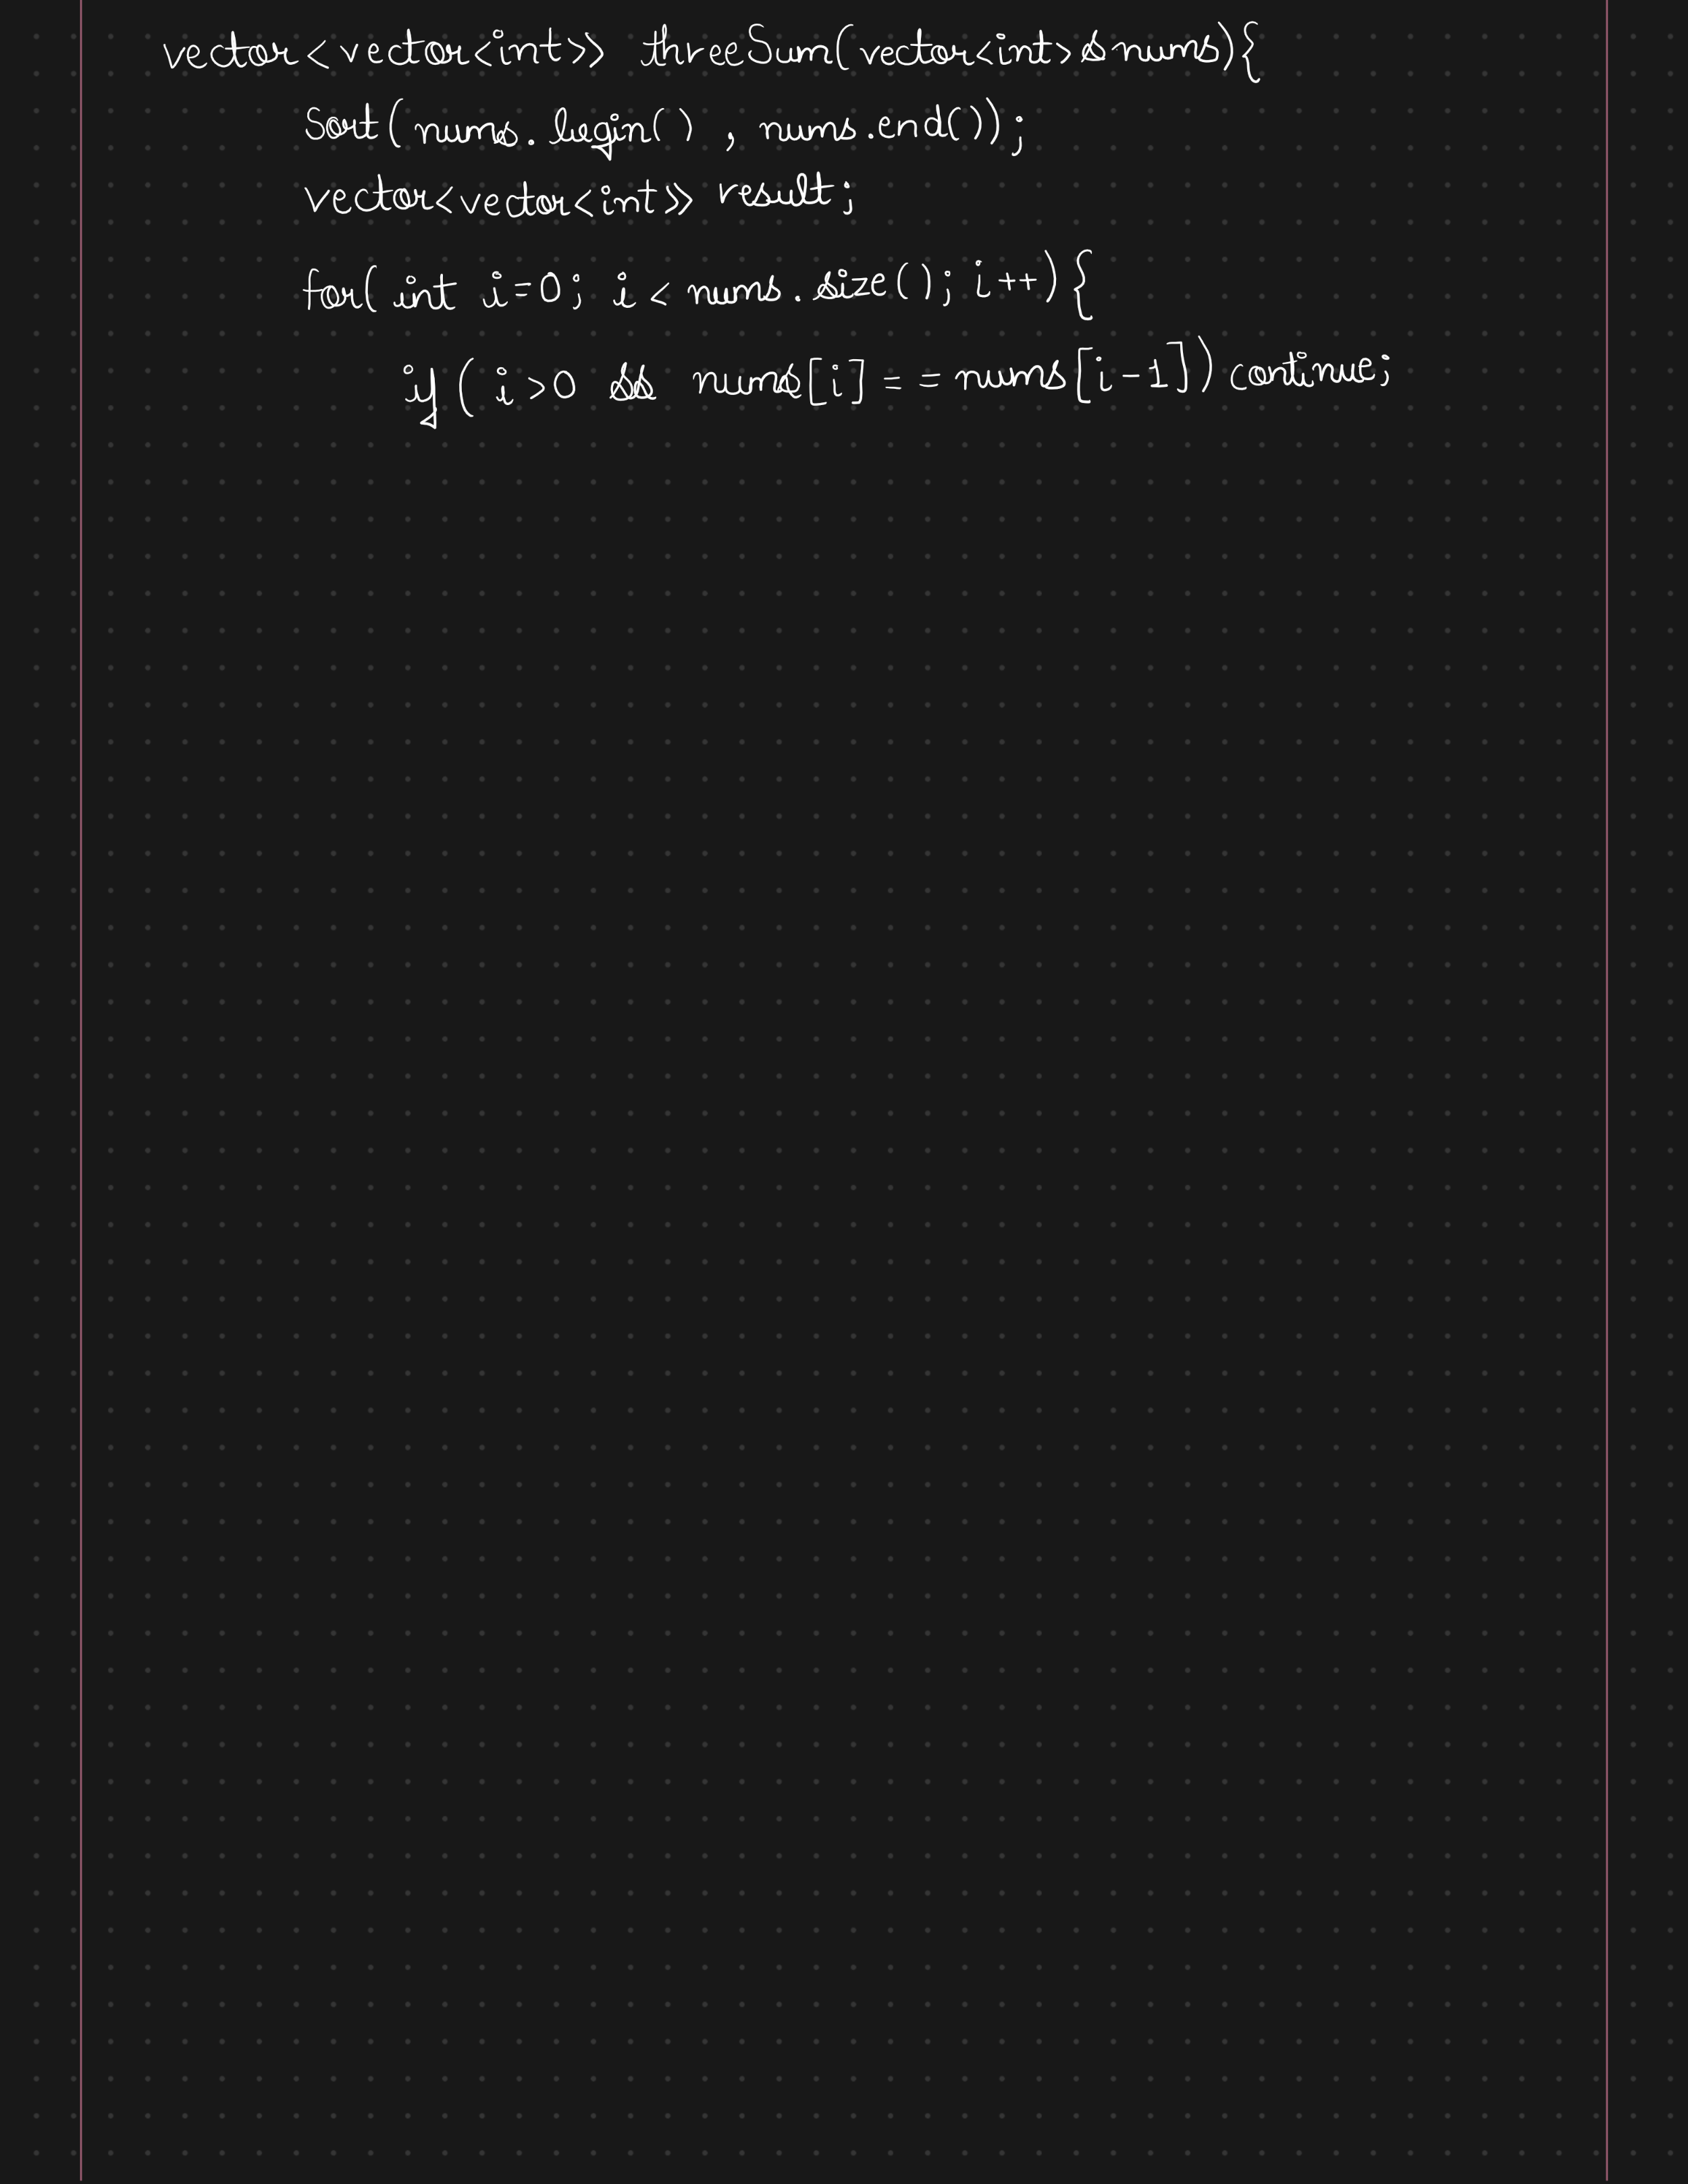 vector<vector<int>> threeSum(vector<int>&nums){
sort(nums.begin() , nums.end());
vector<vector<int>> result;
for( int i=0; i < nums.size(); i++){
if( i>0 && nums[i] == nums[i-1]) continue;